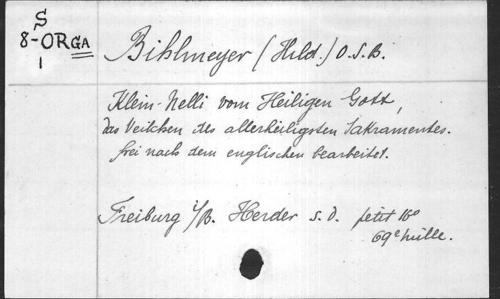 S
8-ORGA
1
Bihlmeyer (Hild.) O.S.B.
Klein-Nelli vom Heiligen Gott,
das Veilchen des allerheiligsten Sakramentes.
frei nach dem englischen bearbeitet.
Freiburg i/B. Herder s.d. petit 16°
69e mille.